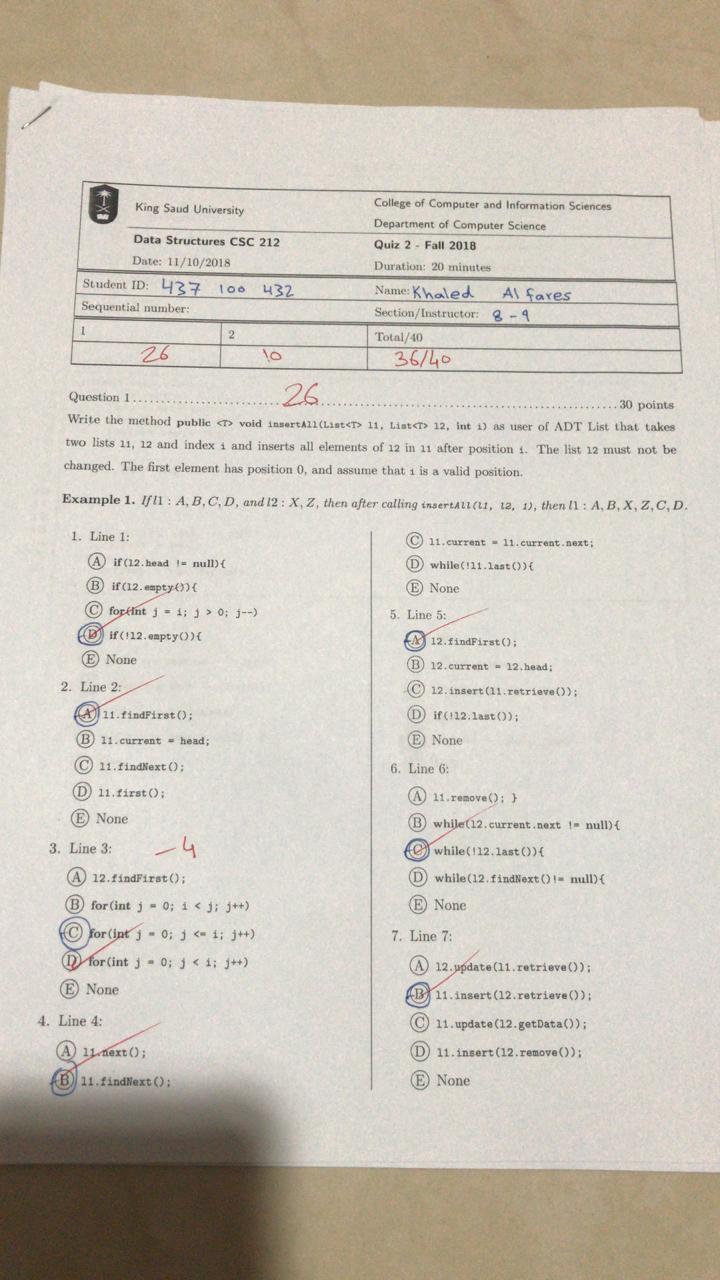 King Saud University
College of Computer and Information Sciences
Department of Computer Science
Data Structures CSC 212
Quiz 2 - Fall 2018
Date: 11/10/2018
Duration: 20 minutes
Student ID: 437 100 432
Name: Khaled Al fares
Sequential number:
Section/Instructor: 8 - 9
1 2 Total/40
26 10 36/40
26
Question 1 30 points
Write the method public <T> void insertAll(List<T> l1, List<T> l2, int i) as user of ADT List that takes
two lists l1, l2 and index i and inserts all elements of l2 in l1 after position i. The list l2 must not be
changed. The first element has position 0, and assume that i is a valid position.
Example 1. If l1 : A, B, C, D, and l2 : X, Z, then after calling insertAll(l1, l2, 1), then l1 : A, B, X, Z, C, D.
1. Line 1:
A if(l2.head != null){
B if(l2.empty()){
C for(int j = i; j > 0; j--)
D if(!l2.empty()){
E None
2. Line 2:
A l1.findFirst();
B l1.current = head;
C l1.findNext();
D l1.first();
E None
3. Line 3: -4
A l2.findFirst();
B for(int j = 0; i < j; j++)
C for(int j = 0; j <= i; j++)
D for(int j = 0; j < i; j++)
E None
4. Line 4:
A l1.next();
B l1.findNext();
C l1.current = l1.current.next;
D while(!l1.last()){
E None
5. Line 5:
A l2.findFirst();
B l2.current = l2.head;
C l2.insert(l1.retrieve());
D if(!l2.last());
E None
6. Line 6:
A l1.remove(); }
B while(l2.current.next != null){
C while(!l2.last()){
D while(l2.findNext()!= null){
E None
7. Line 7:
A l2.update(l1.retrieve());
B l1.insert(l2.retrieve());
C l1.update(l2.getData());
D l1.insert(l2.remove());
E None